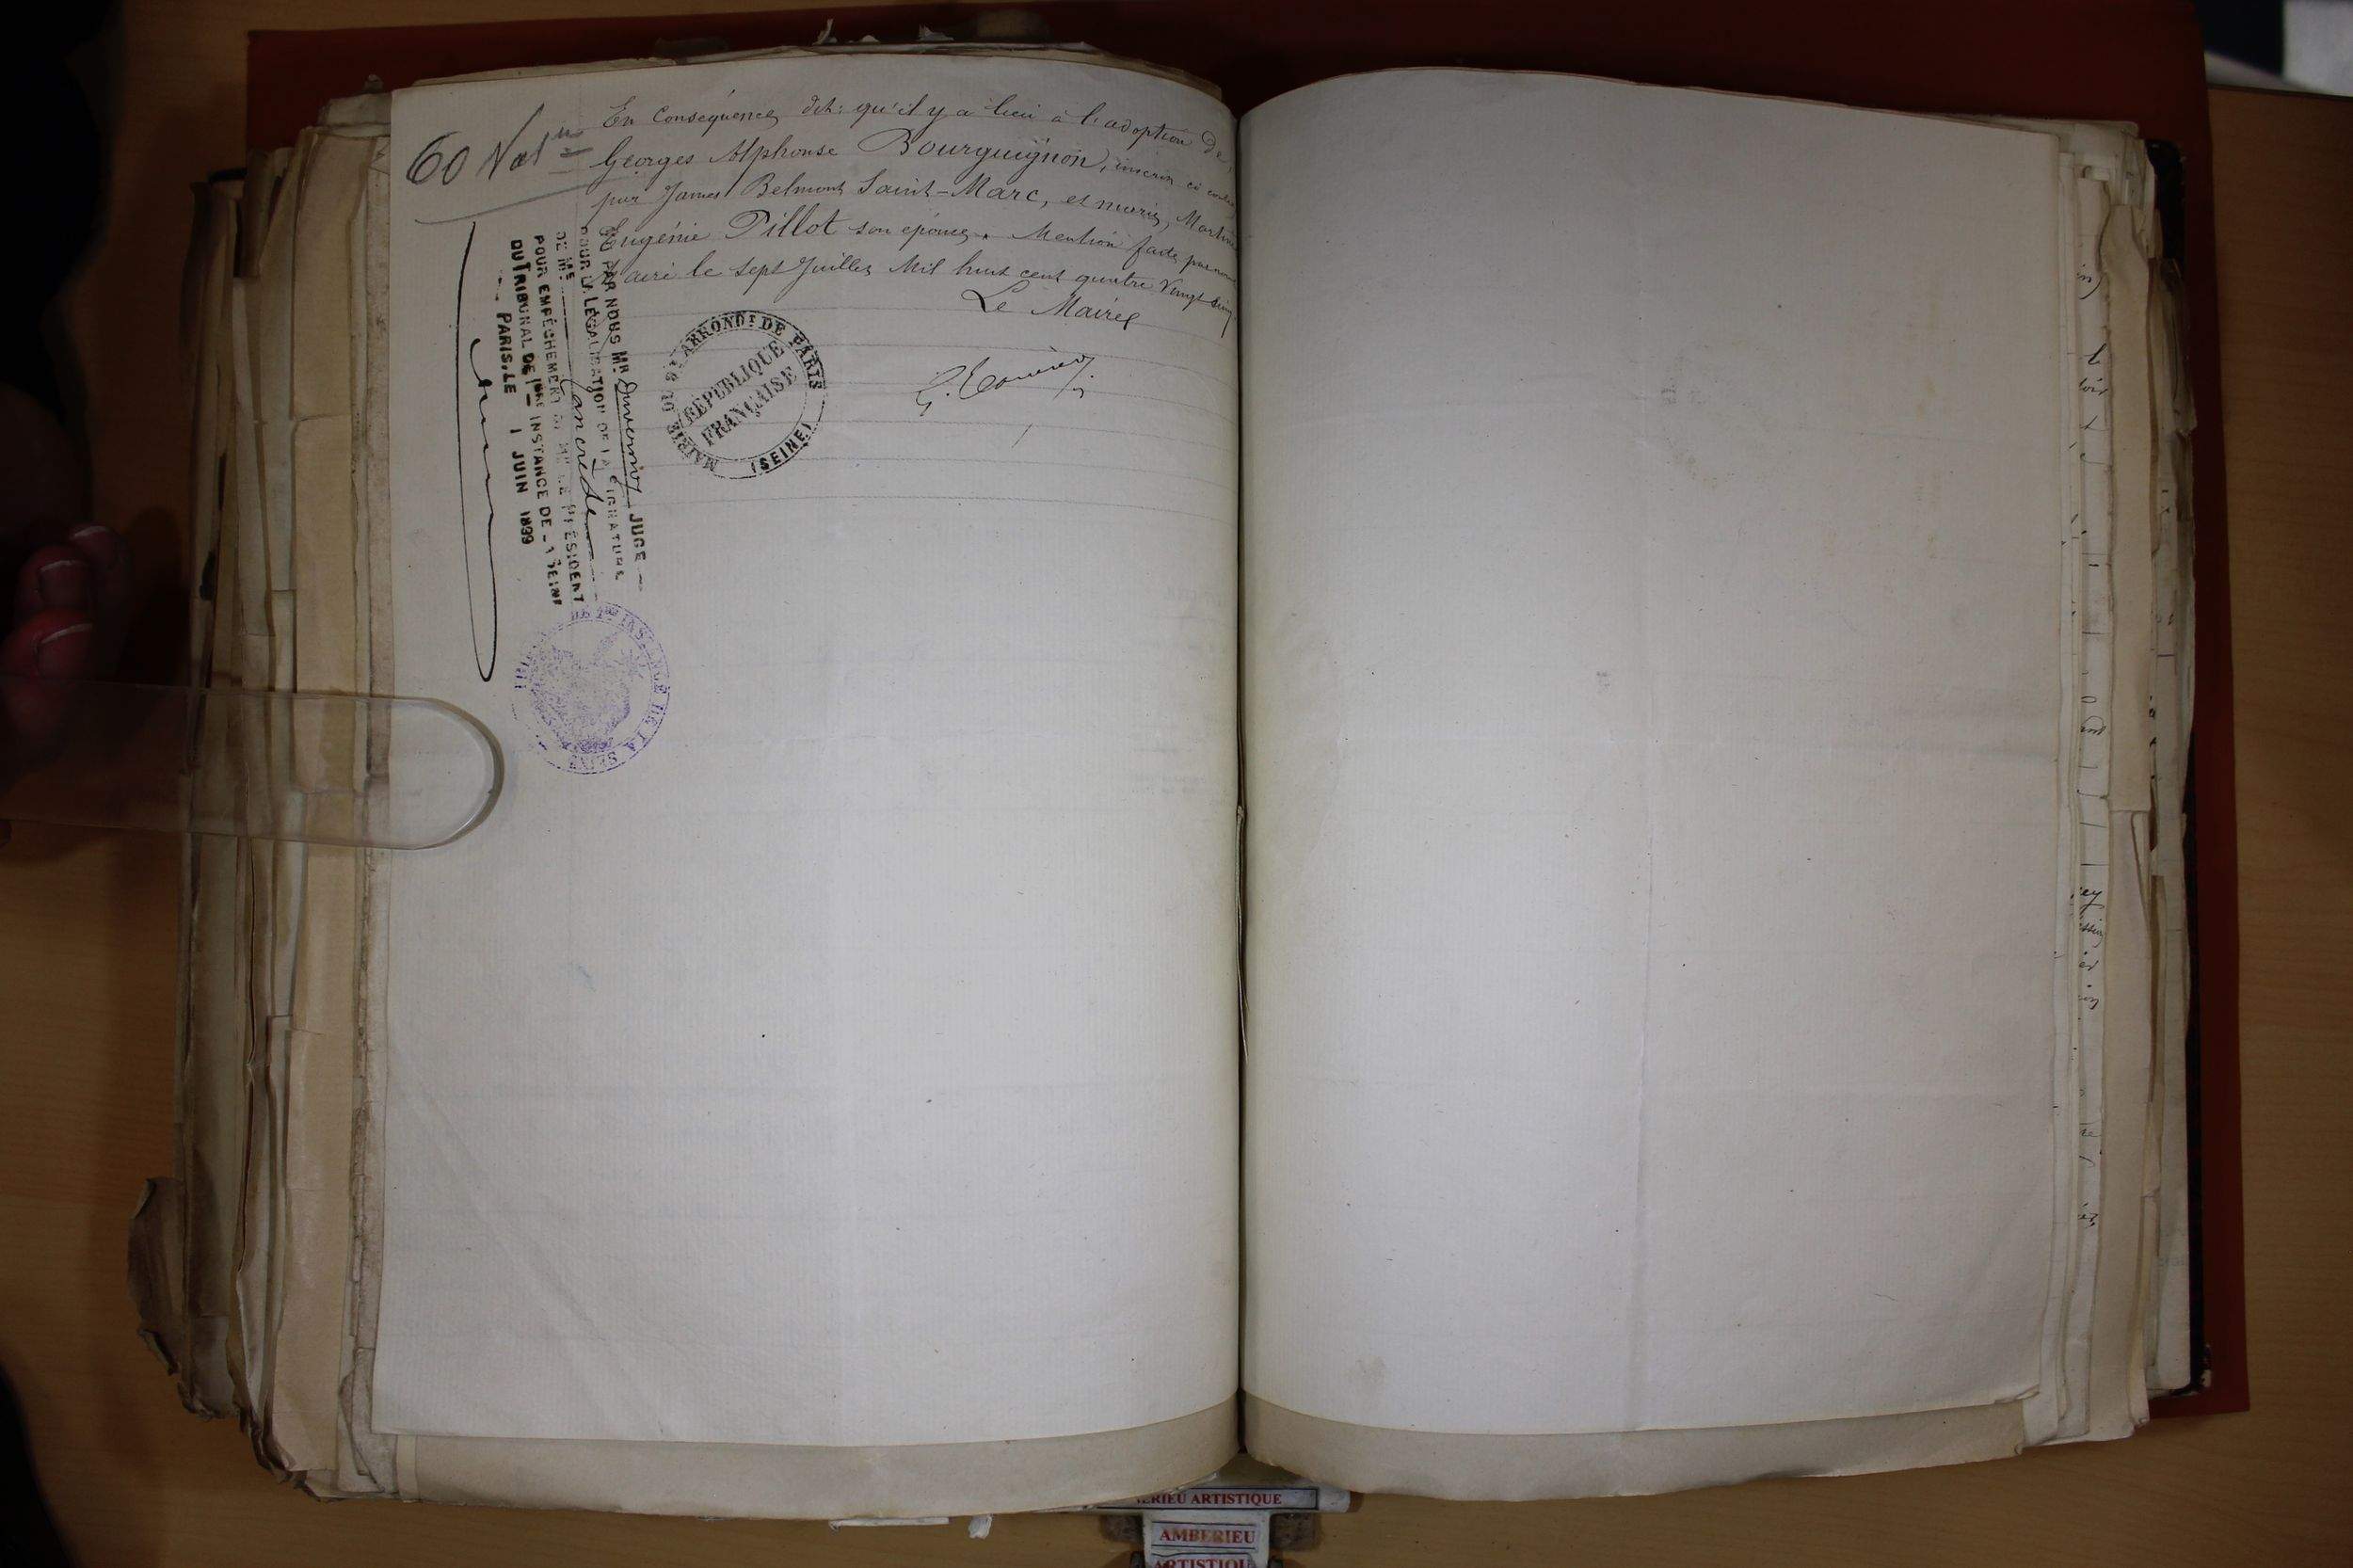 60 Nat
En Conséquence, dit: qu'il y a lieu à l'adoption de
Georges Alphonse Bourguignon, inscrit ci contre
par James Belmont Saint-Marc, et marie, Martine
Eugénie Pillot son épouse. Mention faite par nous
Maire le Sept Juillet Mil huit cent quatre Vingt
Le Maire
MAIRIE DU ARRONDT DE PARIS
(SEINE)
RÉPUBLIQUE
FRANÇAISE
PAR NOUS MR JUGE
POUR LA LÉGALISATION DE LA SIGNATURE
DE ME
POUR EMPÊCHEMENT DE MR LE PRÉSIDENT
DU TRIBUNAL DE 1ERE INSTANCE DE LA SEINE
PARIS, LE 1 JUIN 1899
DE LA SEINE
ARTISTIQUE
AMBERIEU